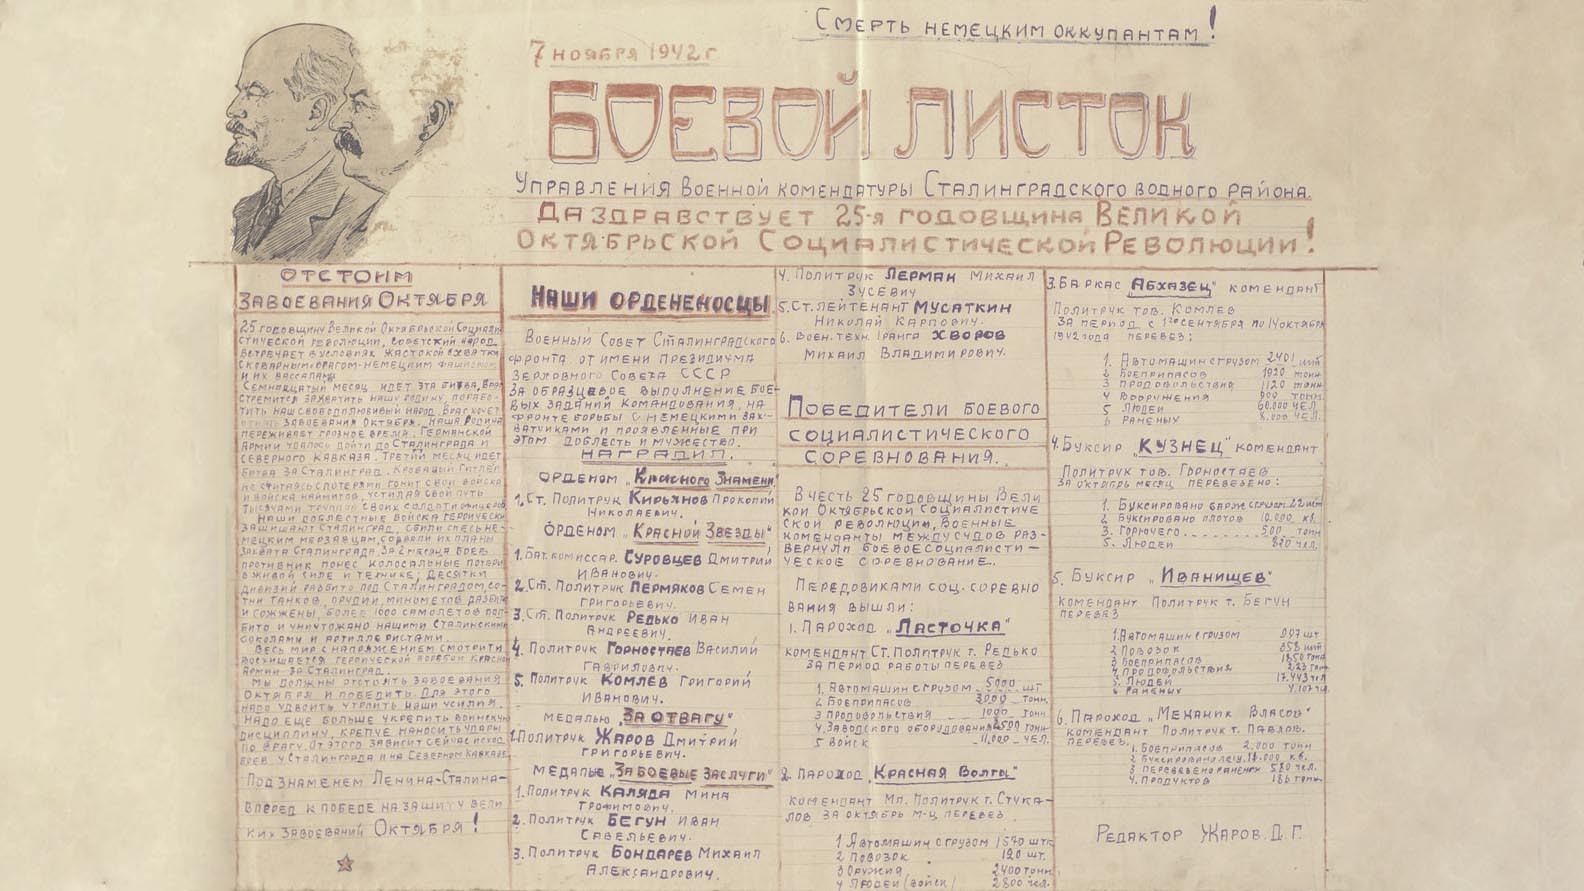 Смерть немецким оккупантам!
7 ноября 1942 г
БОЕВОЙ ЛИСТОК
Управления Военной комендатуры Сталинградского водного района.
Да здравствует 25-я годовщина Великой
Октябрьской Социалистической Революции!
Отстоим
завоевания Октября
25 годовщину Великой Октябрьской Социали
стической революции, советский народ
встречает в условиях жастокой схватки
с коварным врагом-немецким фашизмом
и их вассалами
Семнадцатый месяц идет эта битва, Враг
стремится захватить нашу родину, порабо-
тить наш свободолюбивый народ, Враг хочет
завоевания Октября. Наша Родина
переживает грозное время. Германской
армии удалось дойти до Сталинграда и
Северного Кавказа. Третий месяц идет
битва за Сталинград. Кровавый Гитлер
не считаясь с потерями гонит свои войска
и войска наймитов, устилая свой путь
тысячами трупов своих солдат и офицеров
Наши доблестные войска героически
защищают Сталинград, сбили спесь не-
мецким мерзавцам, сорвали их планы
захвата Сталинграда. За 2 месяца боев
противник понес колосальные потери
в живой силе и технике; десятки
дивизий разбито под Сталинградом, со-
тни танков, орудий, минометов разбито
и сожжены, более 1000 самолетов под-
бито и уничтожано нашими сталинскими
соколами и артиллеристами.
Весь мир с напряжением смотрит и
восхищается героической борьбой Красной
Армии за Сталинград.
Мы должны отстоять завоевания
Октября и победить. Для этого
надо удвоить утроить наши усилия.
Надо еще больше укрепить воинскую
дисциплину, крепче наносить удары
по врагу. От этого зависит сейчас исход
боев у Сталинграда и на Северном Кавказе.
Под знаменем Ленина-Сталина-
вперед к победе на защиту вели
ких завоеваний Октября!
Наши ордененосцы
Военный Совет Сталинградского
фронта от имени Президиума
Верховного Совета СССР
за образцовое выполнение бое-
вых заданий командования, на
фронте борьбы с немецкими зах-
ватчиками и проявленные при
этом доблесть и мужество.
наградил.
орденом „Красного Знамени"
1. Ст. Политрук Кирьянов Прокопий
Николаевич.
орденом „Красной Звезды"
1. Бат. комиссар. Суровцев Дмитрий
Иванович.
2. Ст. Политрук Пермяков Семен
Григорьевич.
3. Ст. Политрук Редько Иван
Андреевич.
4. Политрук Горностаев Василий
Гаврилович.
5. Политрук Комлев Григорий
Иванович.
медалью „За отвагу"
1. Политрук Жаров Дмитрий
Григорьевич.
медалью „За боевые заслуги"
1. Политрук Каляда Мина
Трофимович.
2. Политрук Бегун Иван
Савельевич.
3. Политрук Бондарев Михаил
Александрович.
4. Политрук Лерман Михаил
Зусевич
5. Ст. лейтенант Мусаткин
Николай Карпович.
6. Воен. техн. I ранга Хворов
Михаил Владимирович.
Победители боевого
социалистического
соревнования.
В честь 25 годовщины Вели
кой Октябрьской Социалистиче
ской революции, Военные
коменданты между судов раз-
вернули боевое социалисти-
ческое соревнование.
Передовиками соц. соревно
вания вышли:
1. Пароход „Ласточка"
комендант Ст. политрук т. Редько
за период работы перевез
1. Автомашин с грузом 5000 шт
2. Боеприпасов 3000 тонн.
3 Продовольствия 1000 тонн
4. Заводского оборудования 2500 тонн
5 Войск 11,000 чел.
2. Пароход „Красная Волга"
комендант Мл. Политрук т. Стука-
лов за октябрь м-ц перевез
1 Автомашин с грузом 1570 штк
2 Повозок 120 шт.
3 Оружия 2400 тонн
4 Людей (войск) 2800 чел.
3. Баркас „Абхазец" комендант
Политрук тов. Комлев
за период с 1го сентября по 14 октября
1942 года перевез:
1. Автомашин с грузом 2401 шт
2 Боеприпасов 1920 тонн
3 Продовольствия 1120 тонн
4 Вооружения 900 тонн.
5 Людей 60.000 чел.
6 Раненых 8.000 чел.
4. Буксир „Кузнец" комендант
Политрук тов. Горностаев
за октябрь месяц перевезено:
1. Буксировано барж с грузом 22 шт
2 Буксировано плотов 10.000 к.в.
3. Горючего 500 тонн
5. Людей 820 чел.
5. Буксир „Иванищев"
комендант политрук т. Бегун
перевез
1. Автомашин с грузом 997 шт
2 Повозок 858 шт
3 Боеприпасов 1850 тонн
4 Продовольствия 223 тонн
5. Людей 17.443 чел
6 Раненых 4,107 чел.
6. Пароход „Механик Власов"
комендант Политрук т. Павлов.
перевез.
1. Боеприпасов 2.000 тонн
2 Буксировано леса 18.000 к.в.
3 Перевезено раненых 520 чел.
4. Продуктов 186 тонн.
Редактор Жаров. Д. Г.